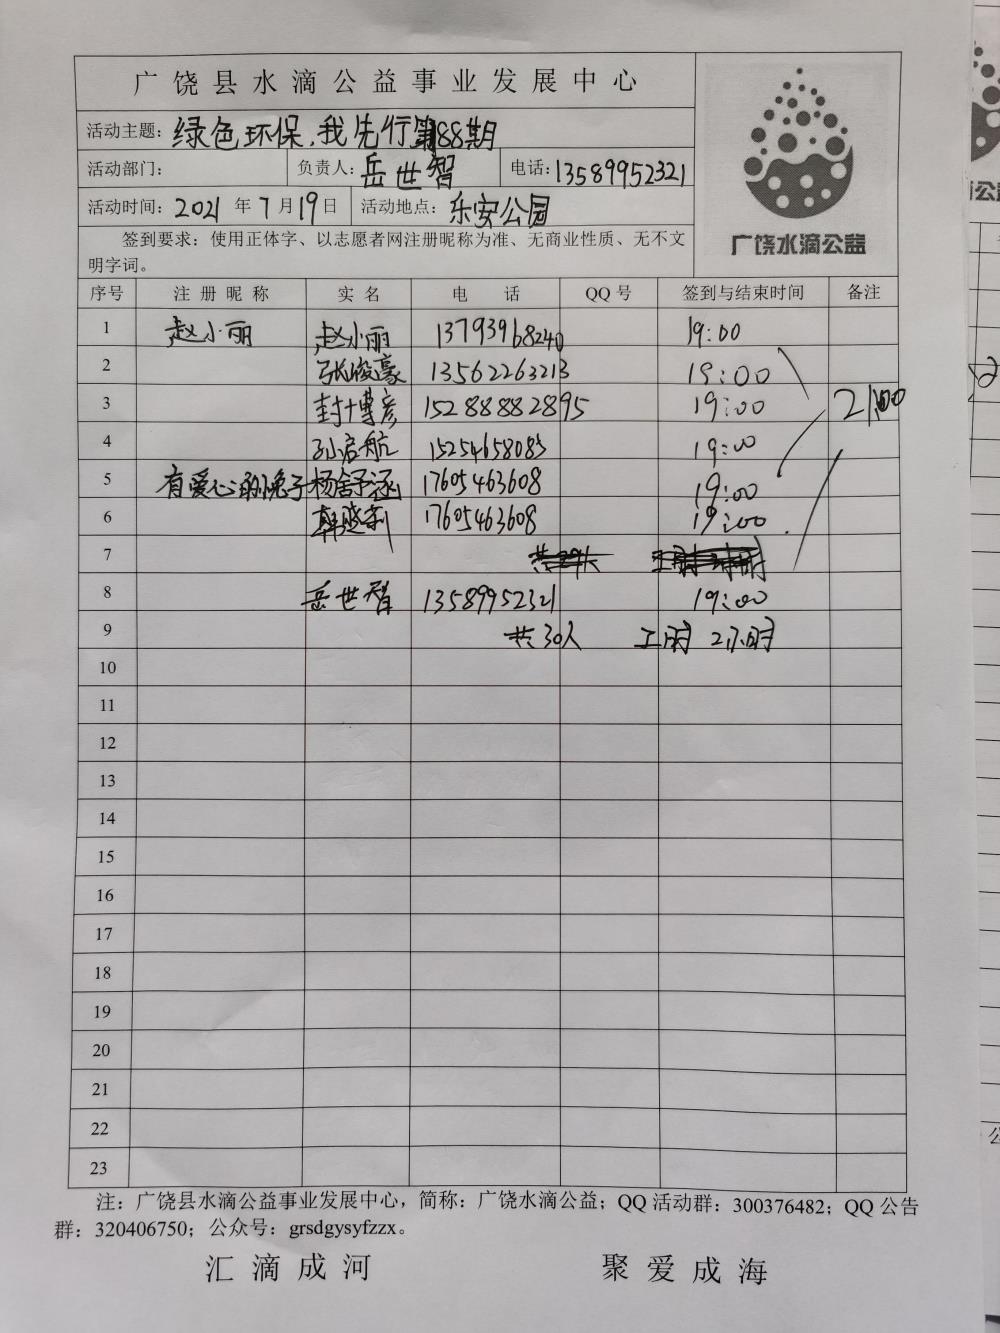 广饶县水滴公益事业发展中心
活动主题：绿色环保，我先行第188期
活动部门： 负责人：岳世智 电话：13589952321
活动时间：2021年7月19日 活动地点：乐安公园
广饶水滴公益
签到要求：使用正体字、以志愿者网注册昵称为准、无商业性质、无不文
明字词。
序号 注册昵称 实名 电话 QQ号 签到与结束时间 备注
1 赵小丽 赵小丽 13793968240 19:00
2 张俊豪 13562263213 19:00
3 封博彦 15288882895 19:00 21:00
4 孙启航 15254658083 19:00
5 有爱心的小兔子 杨舒涵 17605463608 19:00
6 韩晓利 17605463608 19:00
7
8 岳世智 13589952321 19:00
9 共30人 工时 2小时
10
11
12
13
14
15
16
17
18
19
20
21
22
23
注：广饶县水滴公益事业发展中心，简称：广饶水滴公益；QQ活动群：300376482；QQ公告
群：320406750；公众号：grsdgysyfzzx。
汇滴成河 聚爱成海